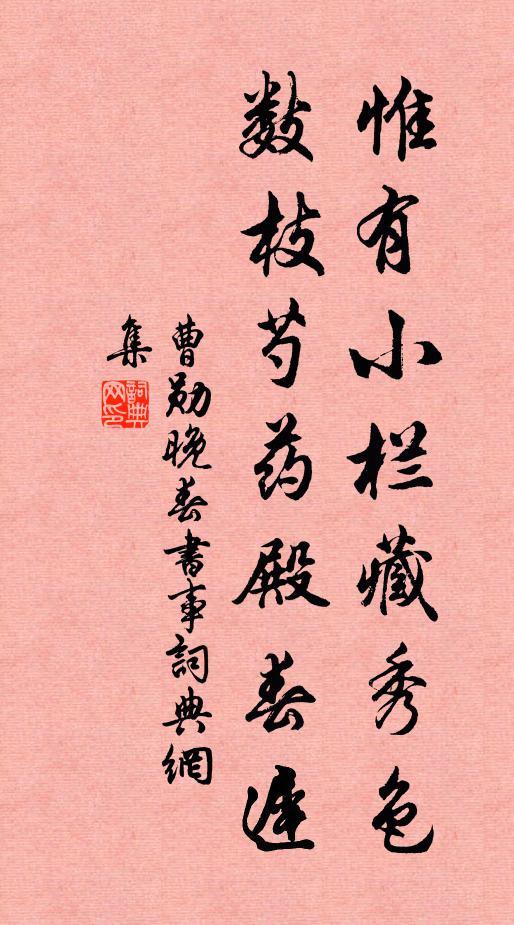 惟有小栏藏秀色
数枝芍药殿春迟
曹勋晚春书事詞典網
集
詞典網印